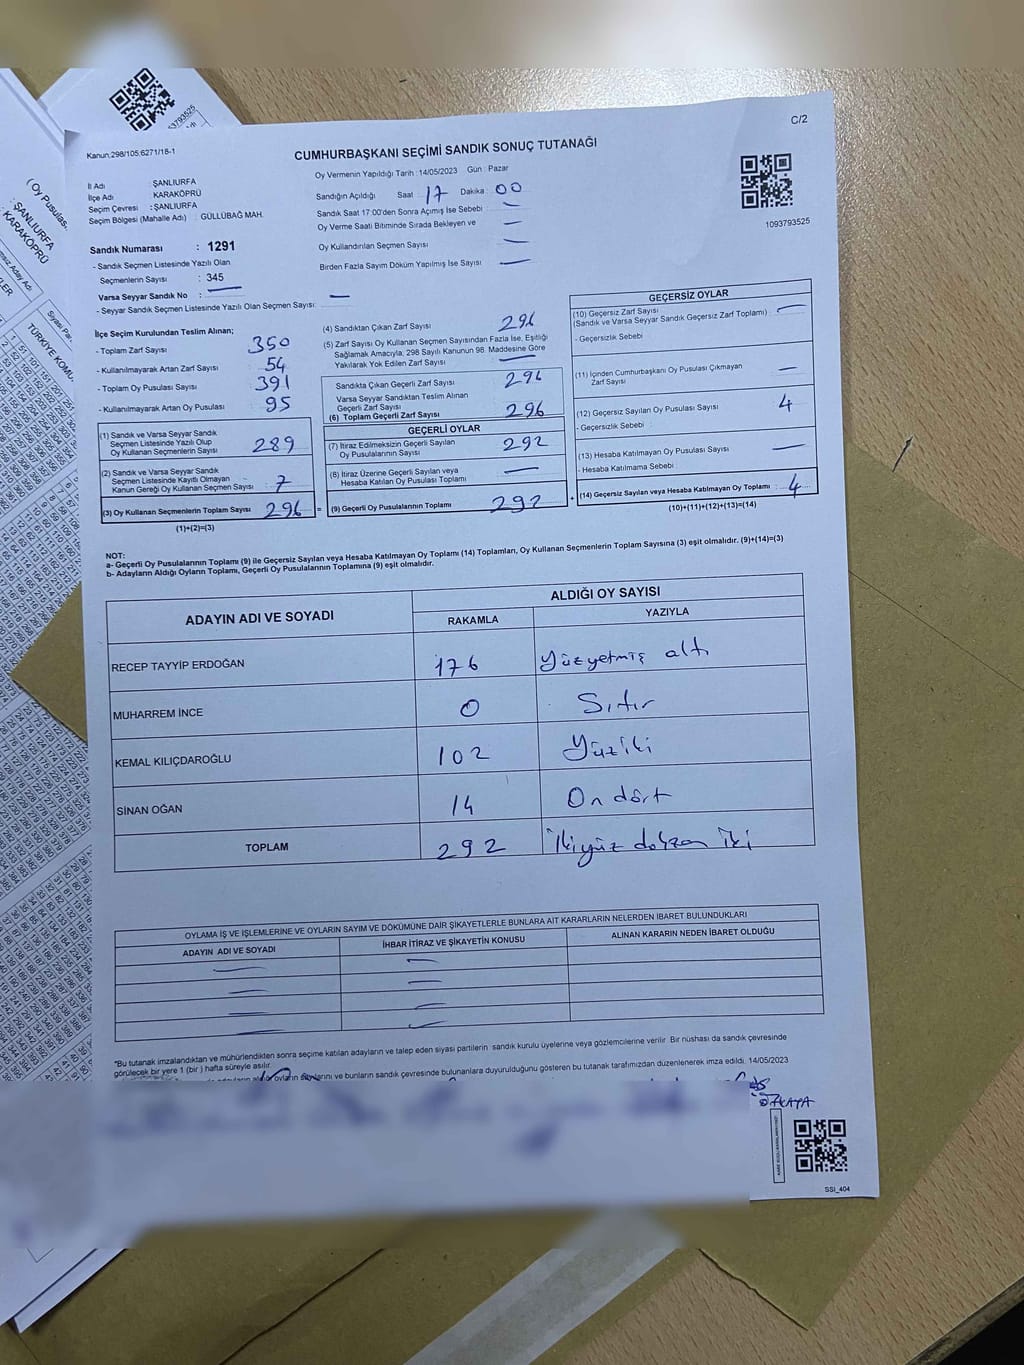 C/2
Kanun:298/105;6271/18-1
CUMHURBAŞKANI SEÇİMİ SANDIK SONUÇ TUTANAĞI
İl Adı : ŞANLIURFA
İlçe Adı : KARAKÖPRÜ
Seçim Çevresi : ŞANLIURFA
Seçim Bölgesi (Mahalle Adı) : GÜLLÜBAĞ MAH.
Oy Vermenin Yapıldığı Tarih : 14/05/2023 Gün : Pazar
Sandığın Açıldığı Saat : 17 Dakika : 00
Sandık Saat 17:00'den Sonra Açımış İse Sebebi : —
Oy Verme Saati Bitiminde Sırada Bekleyen ve —
Oy Kullandırılan Seçmen Sayısı —
Birden Fazla Sayım Döküm Yapılmış İse Sayısı —
1093793525
Sandık Numarası : 1291
- Sandık Seçmen Listesinde Yazılı Olan
Seçmenlerin Sayısı : 345
Varsa Seyyar Sandık No : —
- Seyyar Sandık Seçmen Listesinde Yazılı Olan Seçmen Sayısı: —
İlçe Seçim Kurulundan Teslim Alınan;
- Toplam Zarf Sayısı 350
- Kullanılmayarak Artan Zarf Sayısı 54
- Toplam Oy Pusulası Sayısı 391
- Kullanılmayarak Artan Oy Pusulası 95
(1) Sandık ve Varsa Seyyar Sandık
Seçmen Listesinde Yazılı Olup
Oy Kullanan Seçmen Sayısı 289
(2) Sandık ve Varsa Seyyar Sandık
Seçmen Listesinde Kayıtlı Olmayan
Kanun Gereği Oy Kullanan Seçmen Sayısı 7
(3) Oy Kullanan Seçmenlerin Toplam Sayısı 296 =
(1)+(2)=(3)
(4) Sandıktan Çıkan Zarf Sayısı 296
(5) Zarf Sayısı Oy Kullanan Seçmen Sayısından Fazla İse, Eşitliği
Sağlamak Amacıyla, 298 Sayılı Kanunun 98. Maddesine Göre
Yakılarak Yok Edilen Zarf Sayısı —
Sandıkta Çıkan Geçerli Zarf Sayısı 296
Varsa Seyyar Sandıktan Teslim Alınan
Geçerli Zarf Sayısı
(6) Toplam Geçerli Zarf Sayısı 296
GEÇERLİ OYLAR
(7) İtiraz Edilmeksizin Geçerli Sayılan
Oy Pusulasının Sayısı 292
(8) İtiraz Üzerine Geçerli Sayılan veya
Hesaba Katılan Oy Pusulası Toplamı —
(9) Geçerli Oy Pusulalarının Toplamı 292 +
GEÇERSİZ OYLAR
(10) Geçersiz Zarf Sayısı —
(Sandık ve Varsa Seyyar Sandık Geçersiz Zarf Toplamı)
- Geçersizlik Sebebi
(11) İçinden Cumhurbaşkanı Oy Pusulası Çıkmayan —
Zarf Sayısı
(12) Geçersiz Sayılan Oy Pusulası Sayısı 4
- Geçersizlik Sebebi
(13) Hesaba Katılmayan Oy Pusulası Sayısı —
- Hesaba Katılmama Sebebi
(14) Geçersiz Sayılan veya Hesaba Katılmayan Oy Toplamı 4
(10)+(11)+(12)+(13)=(14)
NOT:
a- Geçerli Oy Pusulalarının Toplamı (9) ile Geçersiz Sayılan veya Hesaba Katılmayan Oy Toplamı (14) Toplamları, Oy Kullanan Seçmenlerin Toplam Sayısına (3) eşit olmalıdır. (9)+(14)=(3)
b- Adayların Aldığı Oyların Toplamı, Geçerli Oy Pusulalarının Toplamına (9) eşit olmalıdır.
ADAYIN ADI VE SOYADI
ALDIĞI OY SAYISI
RAKAMLA YAZIYLA
RECEP TAYYİP ERDOĞAN 176 Yüzyetmiş altı
MUHARREM İNCE 0 Sıfır
KEMAL KILIÇDAROĞLU 102 Yüziki
SİNAN OĞAN 14 On dört
TOPLAM 292 İkiyüz doksan iki
OYLAMA İŞ VE İŞLEMLERİNE VE OYLARIN SAYIM VE DÖKÜMÜNE DAİR ŞİKAYETLERLE BUNLARA AİT KARARLARIN NELERDEN İBARET BULUNDUKLARI
ADAYIN ADI VE SOYADI İHBAR İTİRAZ VE ŞİKAYETİN KONUSU ALINAN KARARIN NEDEN İBARET OLDUĞU
"Bu tutanak imzalandıktan ve mühürlendikten sonra seçime katılan adayların ve talep eden siyasi partilerin sandık kurulu üyelerine veya gözlemcilerine verilir. Bir nüshası da sandık çevresinde
görülecek bir yere 1 (bir ) hafta süreyle asılır.
oyların sayılarını ve bunların sandık çevresinde bulunanlara duyurulduğunu gösteren bu tutanak tarafımızdan düzenlenerek imza edildi. 14/05/2023
SSI_404
( Oy Pusulas
: ŞANLIURFA
: KARAKÖPRÜ